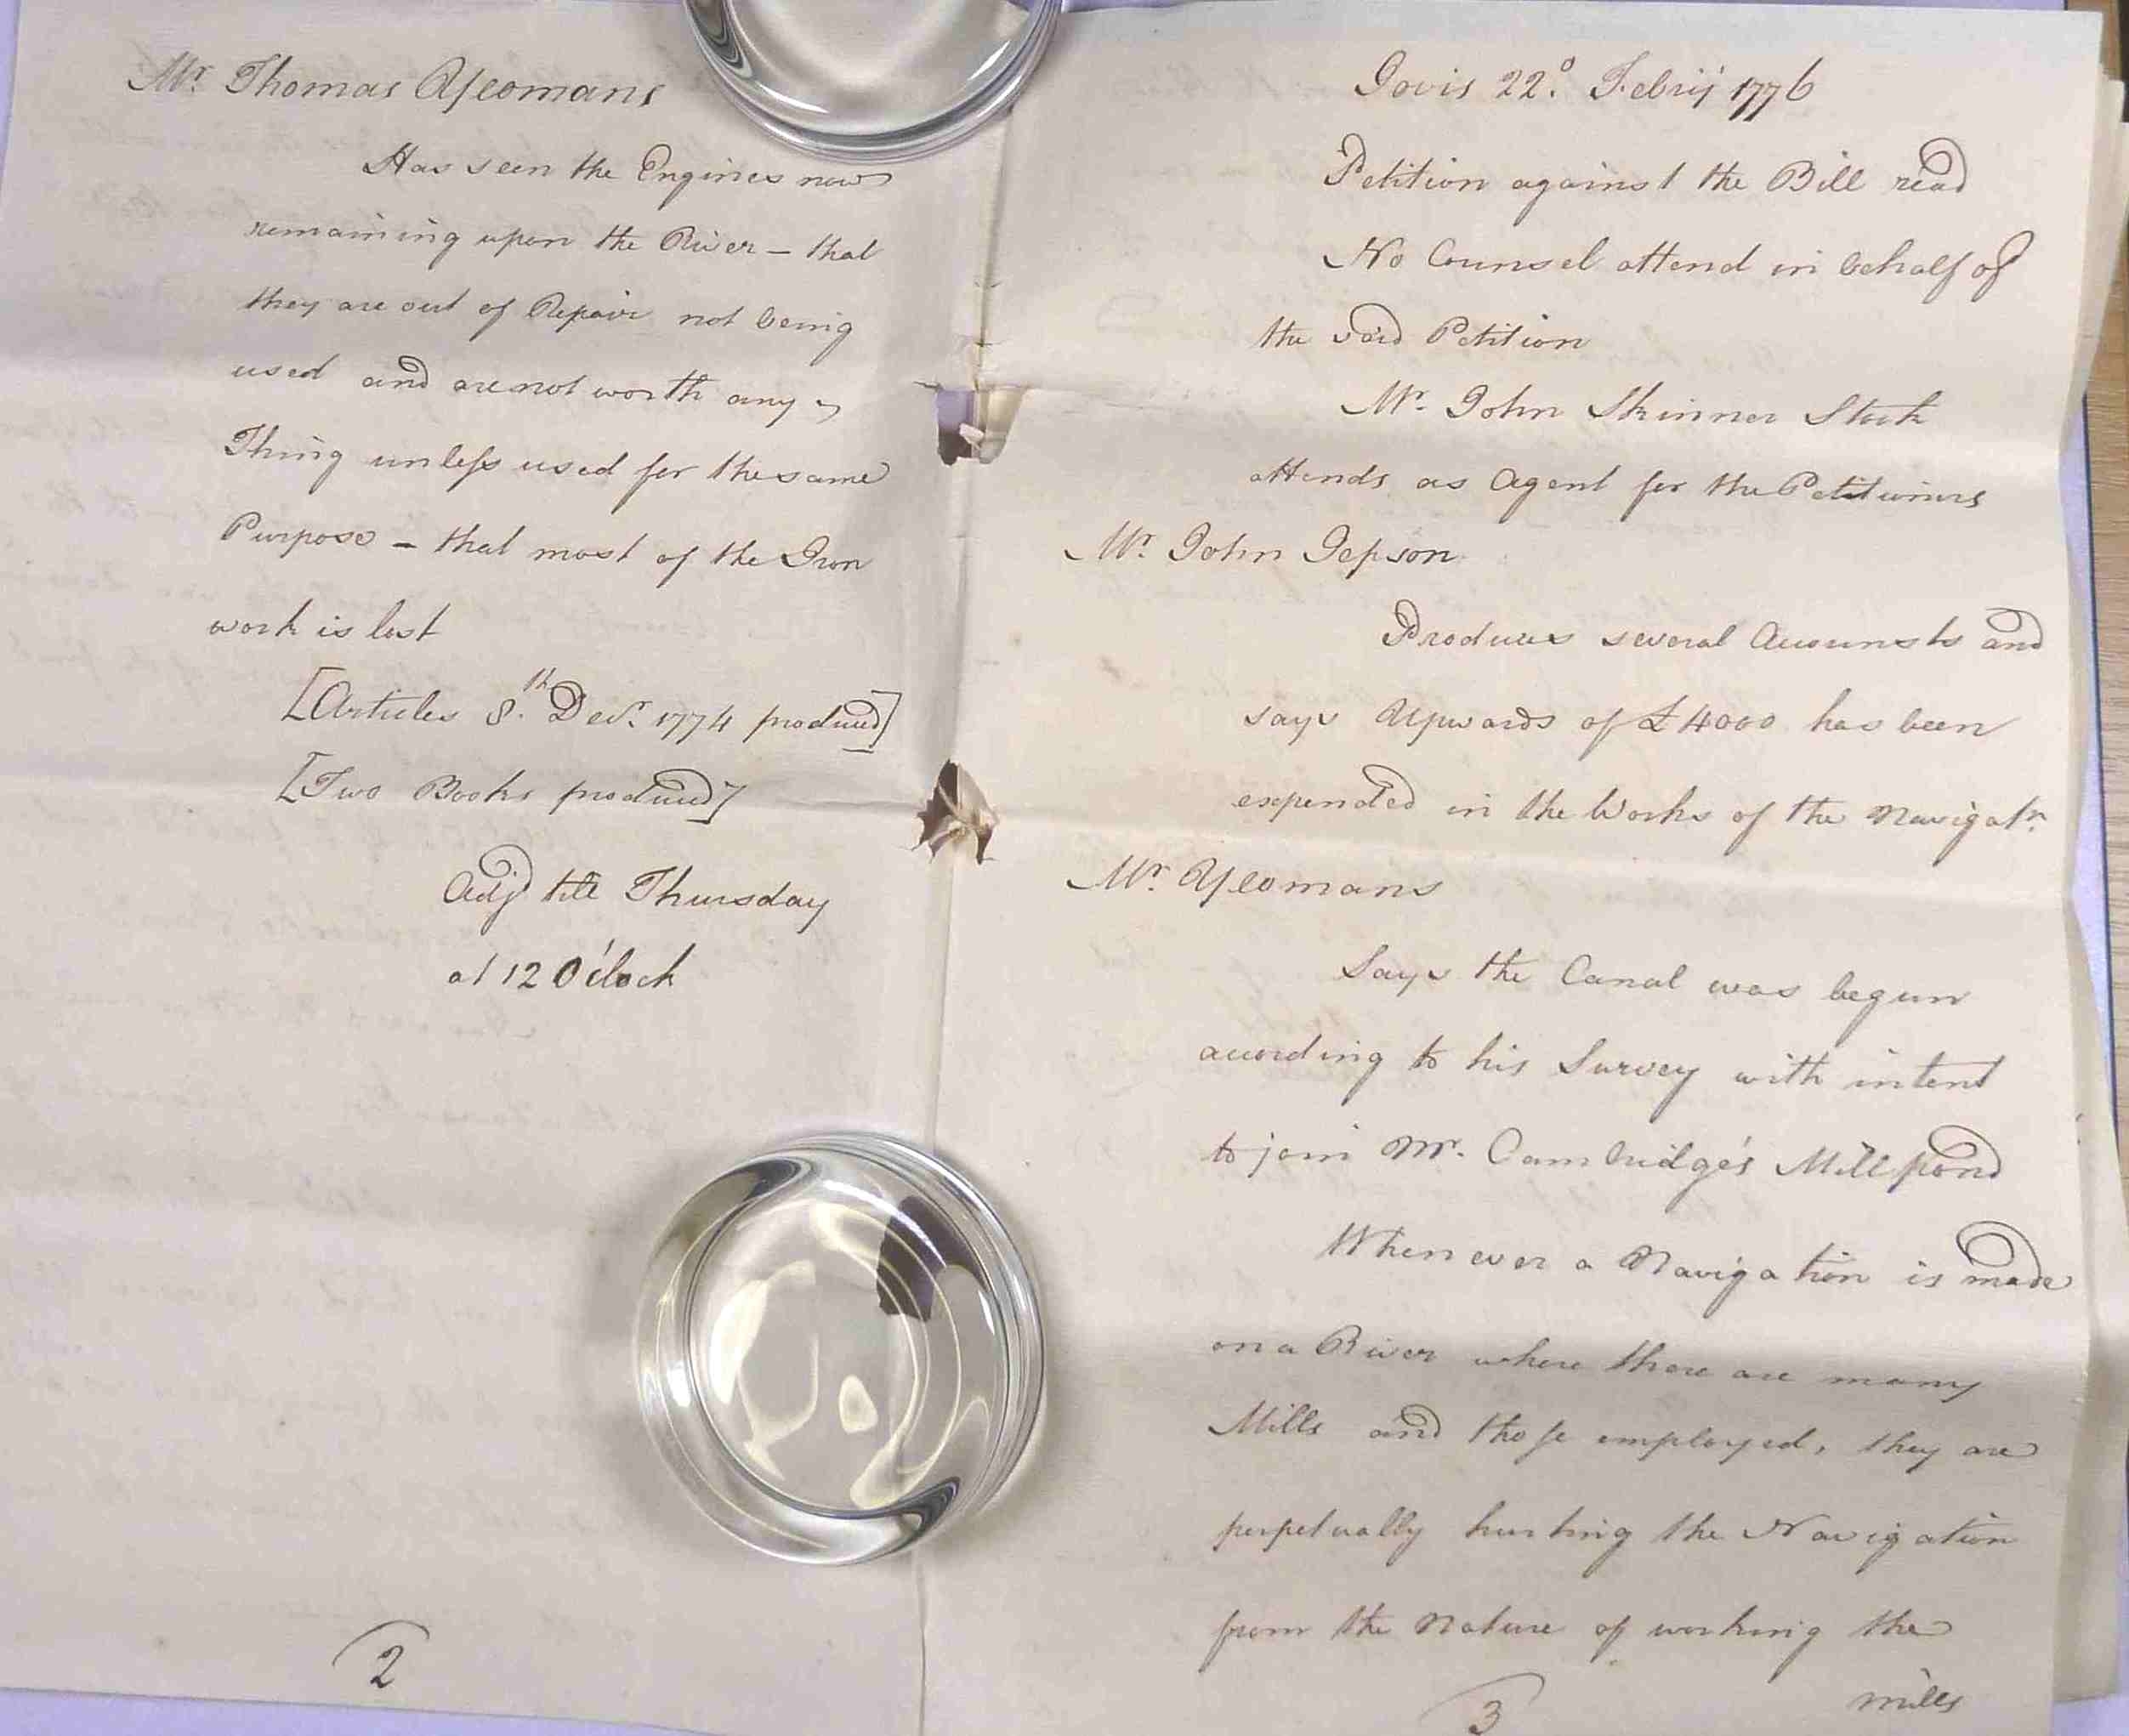 Mr. Thomas Yeomans
Has seen the Engines now
remaining upon the River – that
they are out of Repair not being
used and are not worth any
Thing unless used for the same
Purpose – that most of the Iron
work is lost
[Articles 8.th Decr. 1774 produced]
[Two Books produced]
Adjd till Thursday
at 12 O'Clock
2
Jovis 22.o Febrij 1776
Petition against the Bill read
No Counsel attend in behalf of
the said Petition
Mr. John Skinner Stock
attends as Agent for the Petitioners
Mr. John Jepson
Produces several Accounts and
says Upwards of £4000 has been
expended in the Works of the Navigatn.
Mr. Yeomans
Says the Canal was begun
according to his Survey with intent
to join Mr. Cambridge's Mill pond
Whenever a Navigation is made
on a River where there are many
Mills and those employed, they are
perpetually hurting the Navigation
from the Nature of working the
mills
3